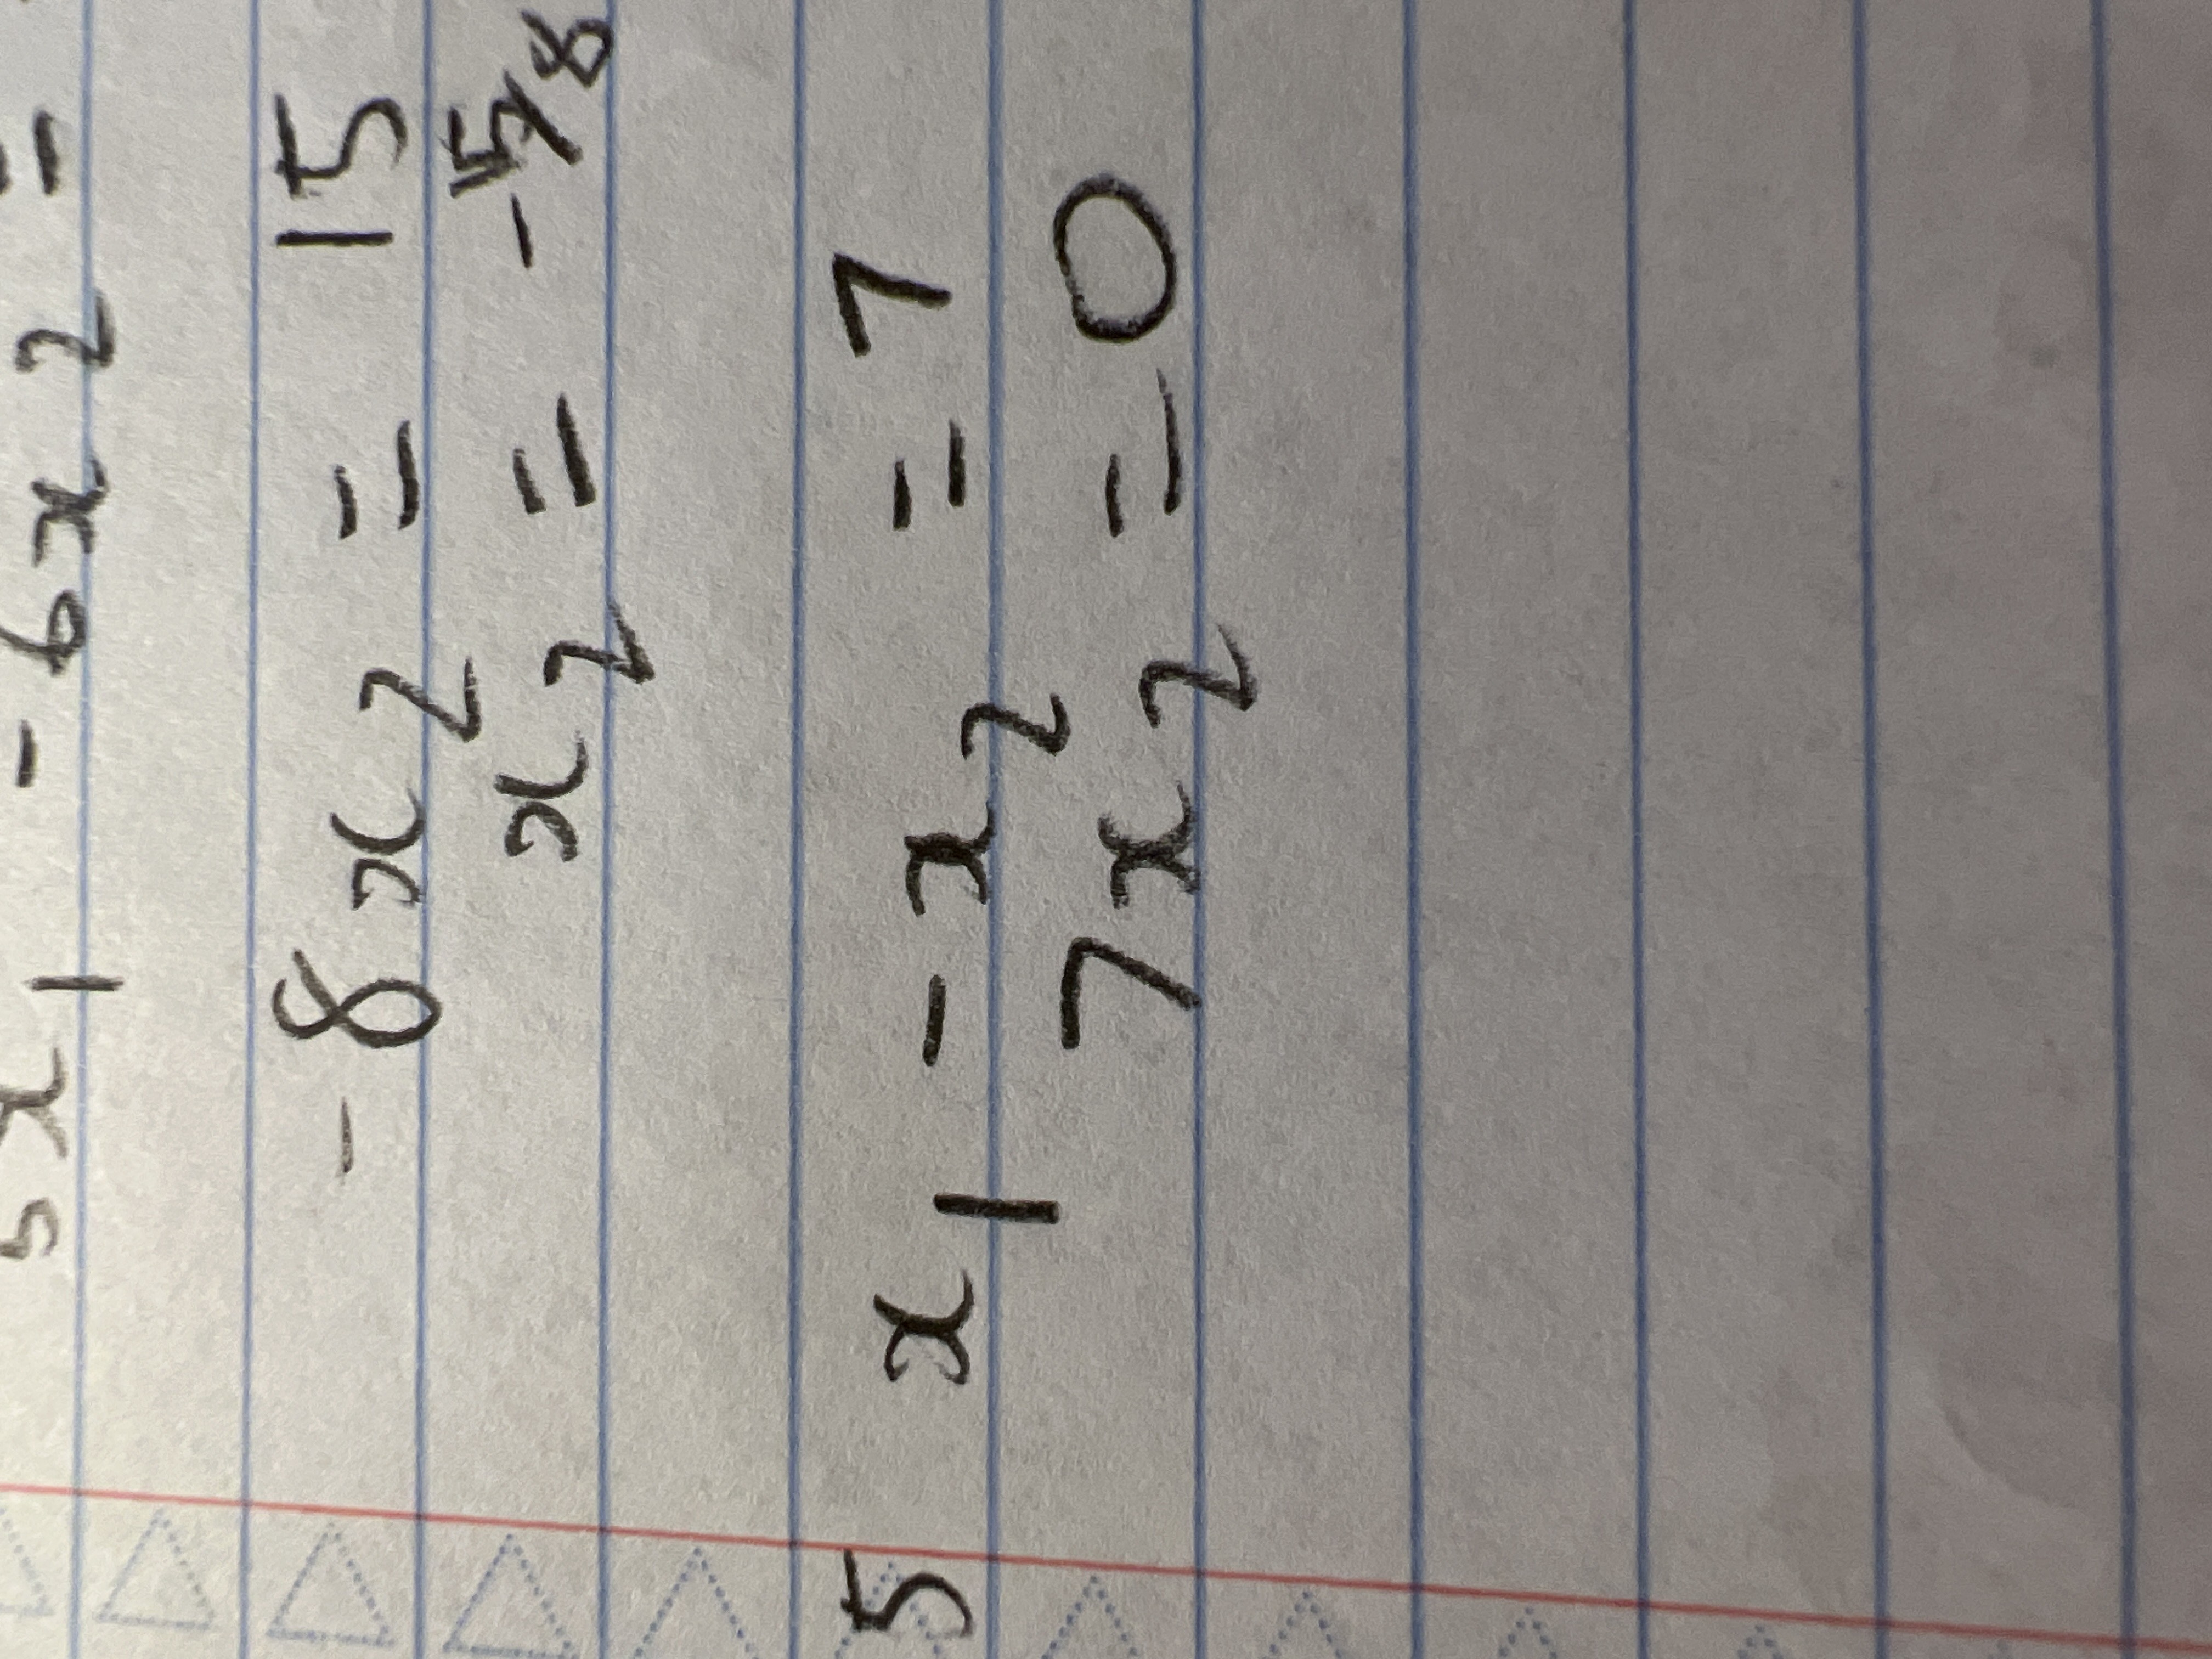 3x1 - 6x2 =
-8x2 = 15
x2 = -15/8
5 x1 - x2 = 7
7x2 = 0